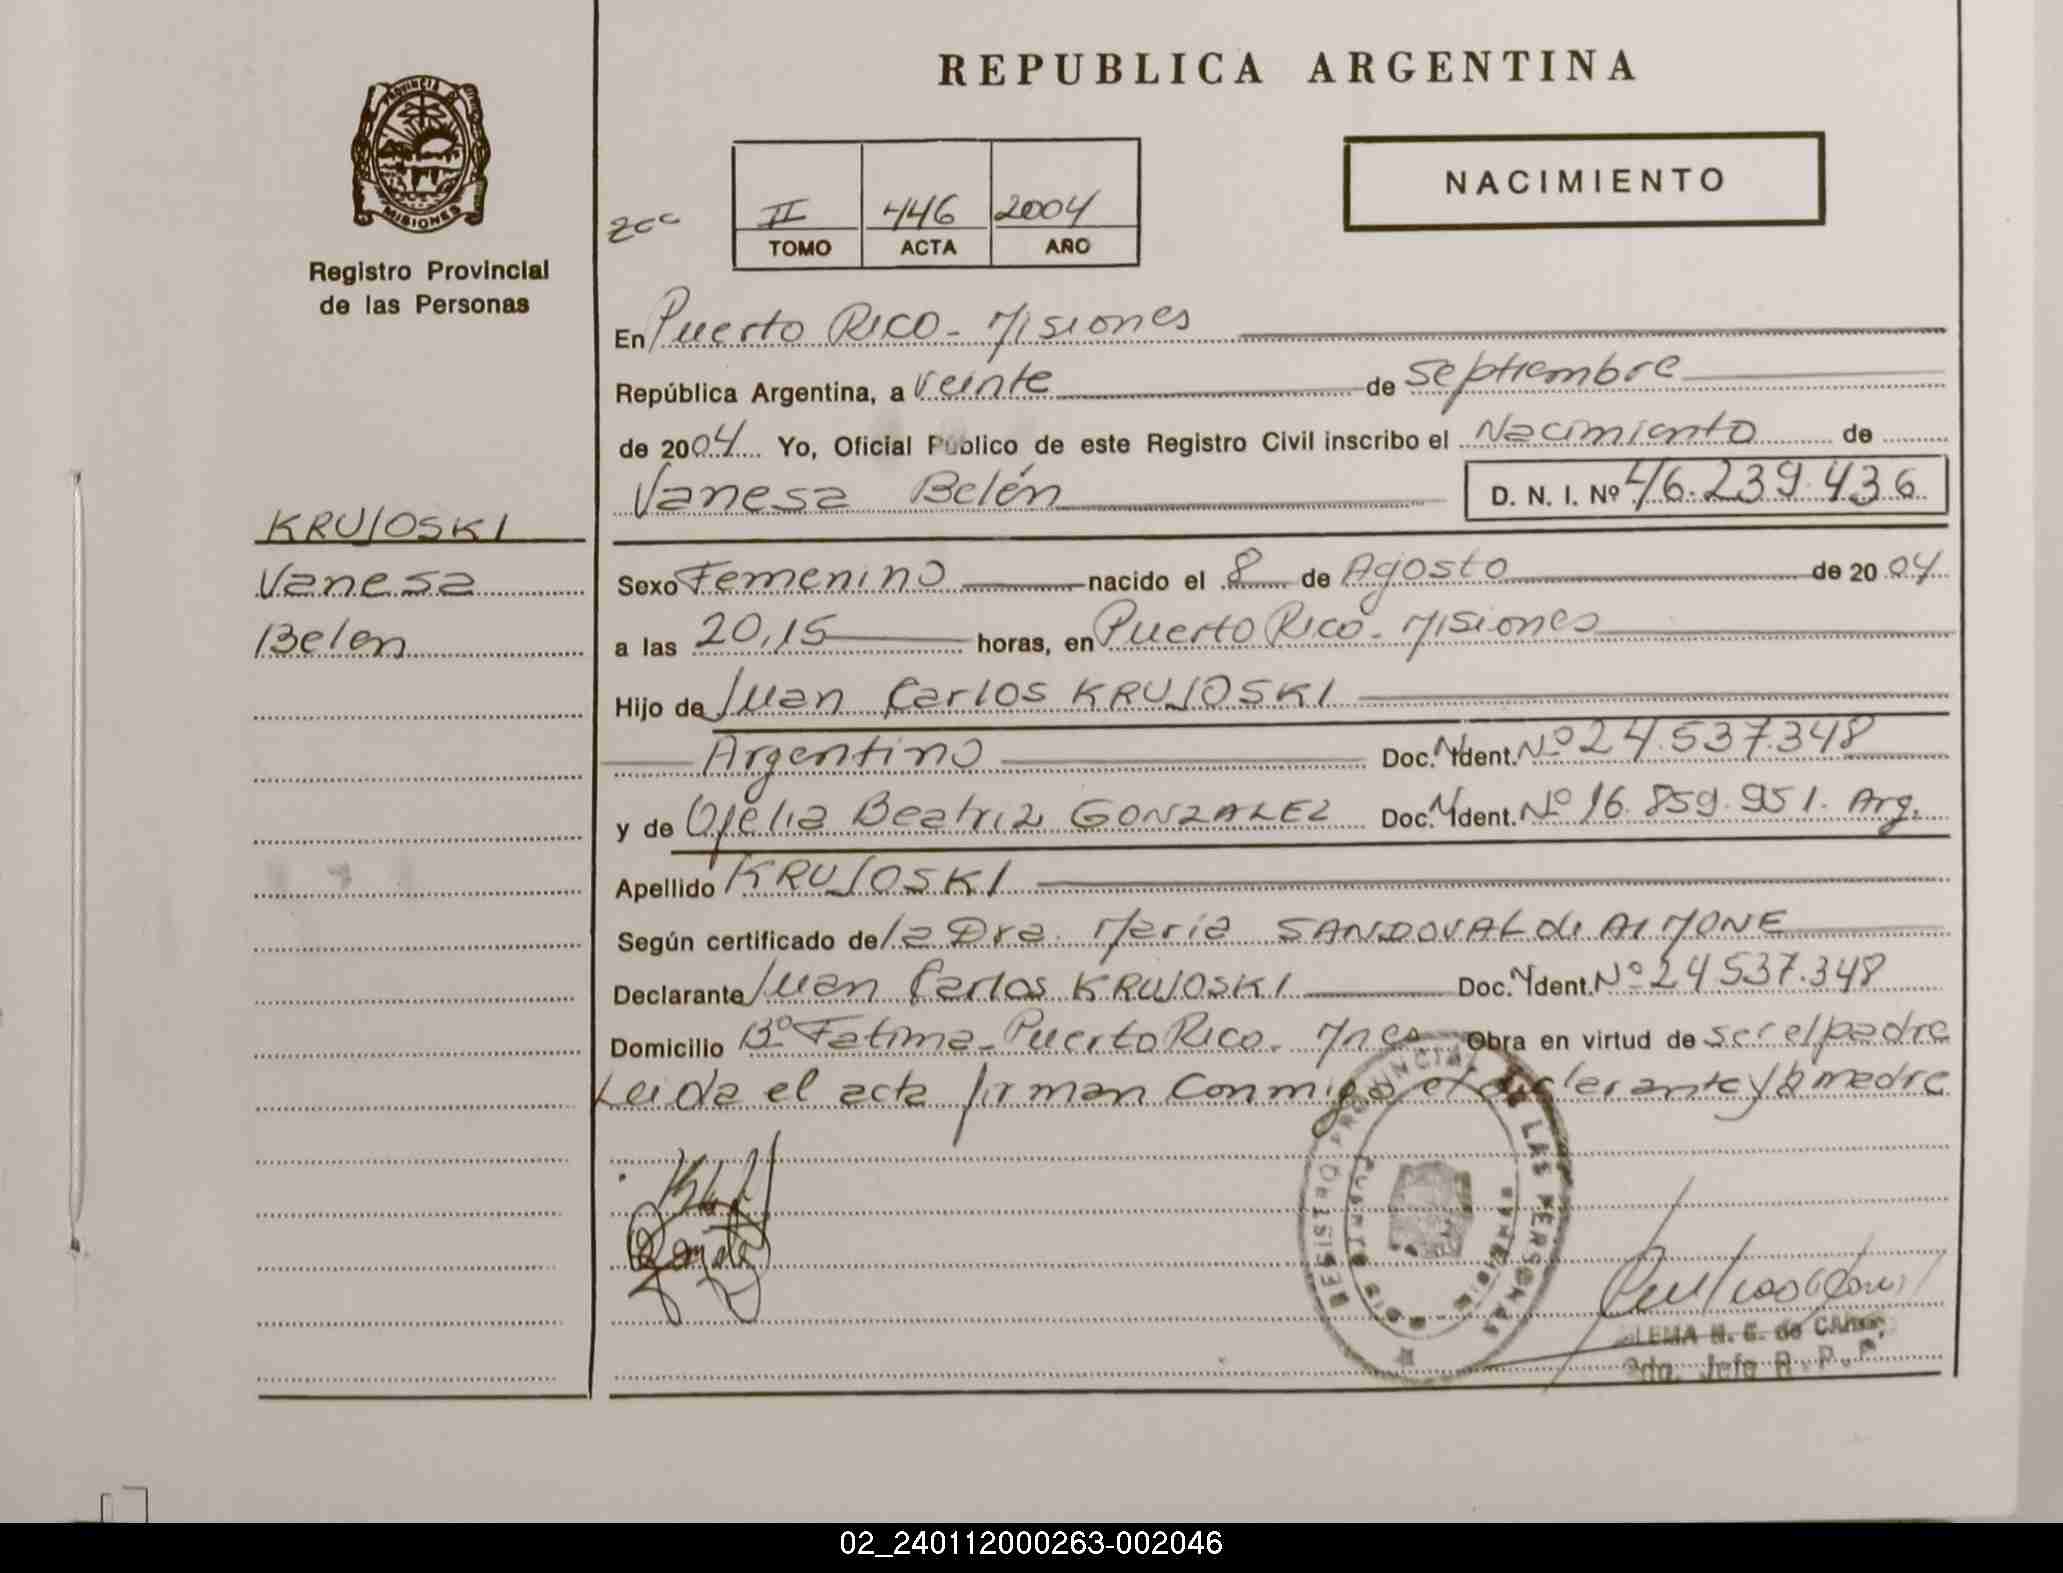 REPUBLICA ARGENTINA
PROVINCIA DE
MISIONES
Registro Provincial
de las Personas
NACIMIENTO
II 446 2004
TOMO ACTA AÑO
En Puerto Rico - Misiones
República Argentina, a veinte de septiembre
de 2004 Yo, Oficial Público de este Registro Civil inscribo el Nacimiento de
Vanesa Belén D. N. I. Nº 46.239.436
KRUJOSKI
Vanesa
Belen
Sexo Femenino nacido el 8 de Agosto de 2004
a las 20,15 horas, en Puerto Rico - Misiones
Hijo de Juan Carlos KRUJOSKI
Argentino Doc. N Ident. Nº 24.537.348
y de Ofelia Beatriz GONZALEZ Doc. N Ident. Nº 16.859.951. Arg.
Apellido KRUJOSKI
Según certificado de la Dra. Maria SANDOVAL de AIMONE
Declarante Juan Carlos KRUJOSKI Doc. N Ident. Nº 24537.348
Domicilio Bº Fatima - Puerto Rico - Mnes Obra en virtud de ser el padre
Leida el acta firman conmigo el declarante y la madre
REGISTRO PROVINCIAL DE LAS PERSONAS
02_240112000263-002046